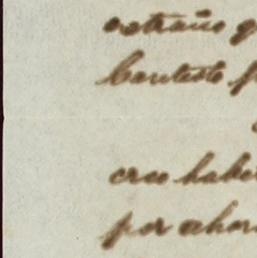 extraño q
Contesto p
creo habe
por ahor